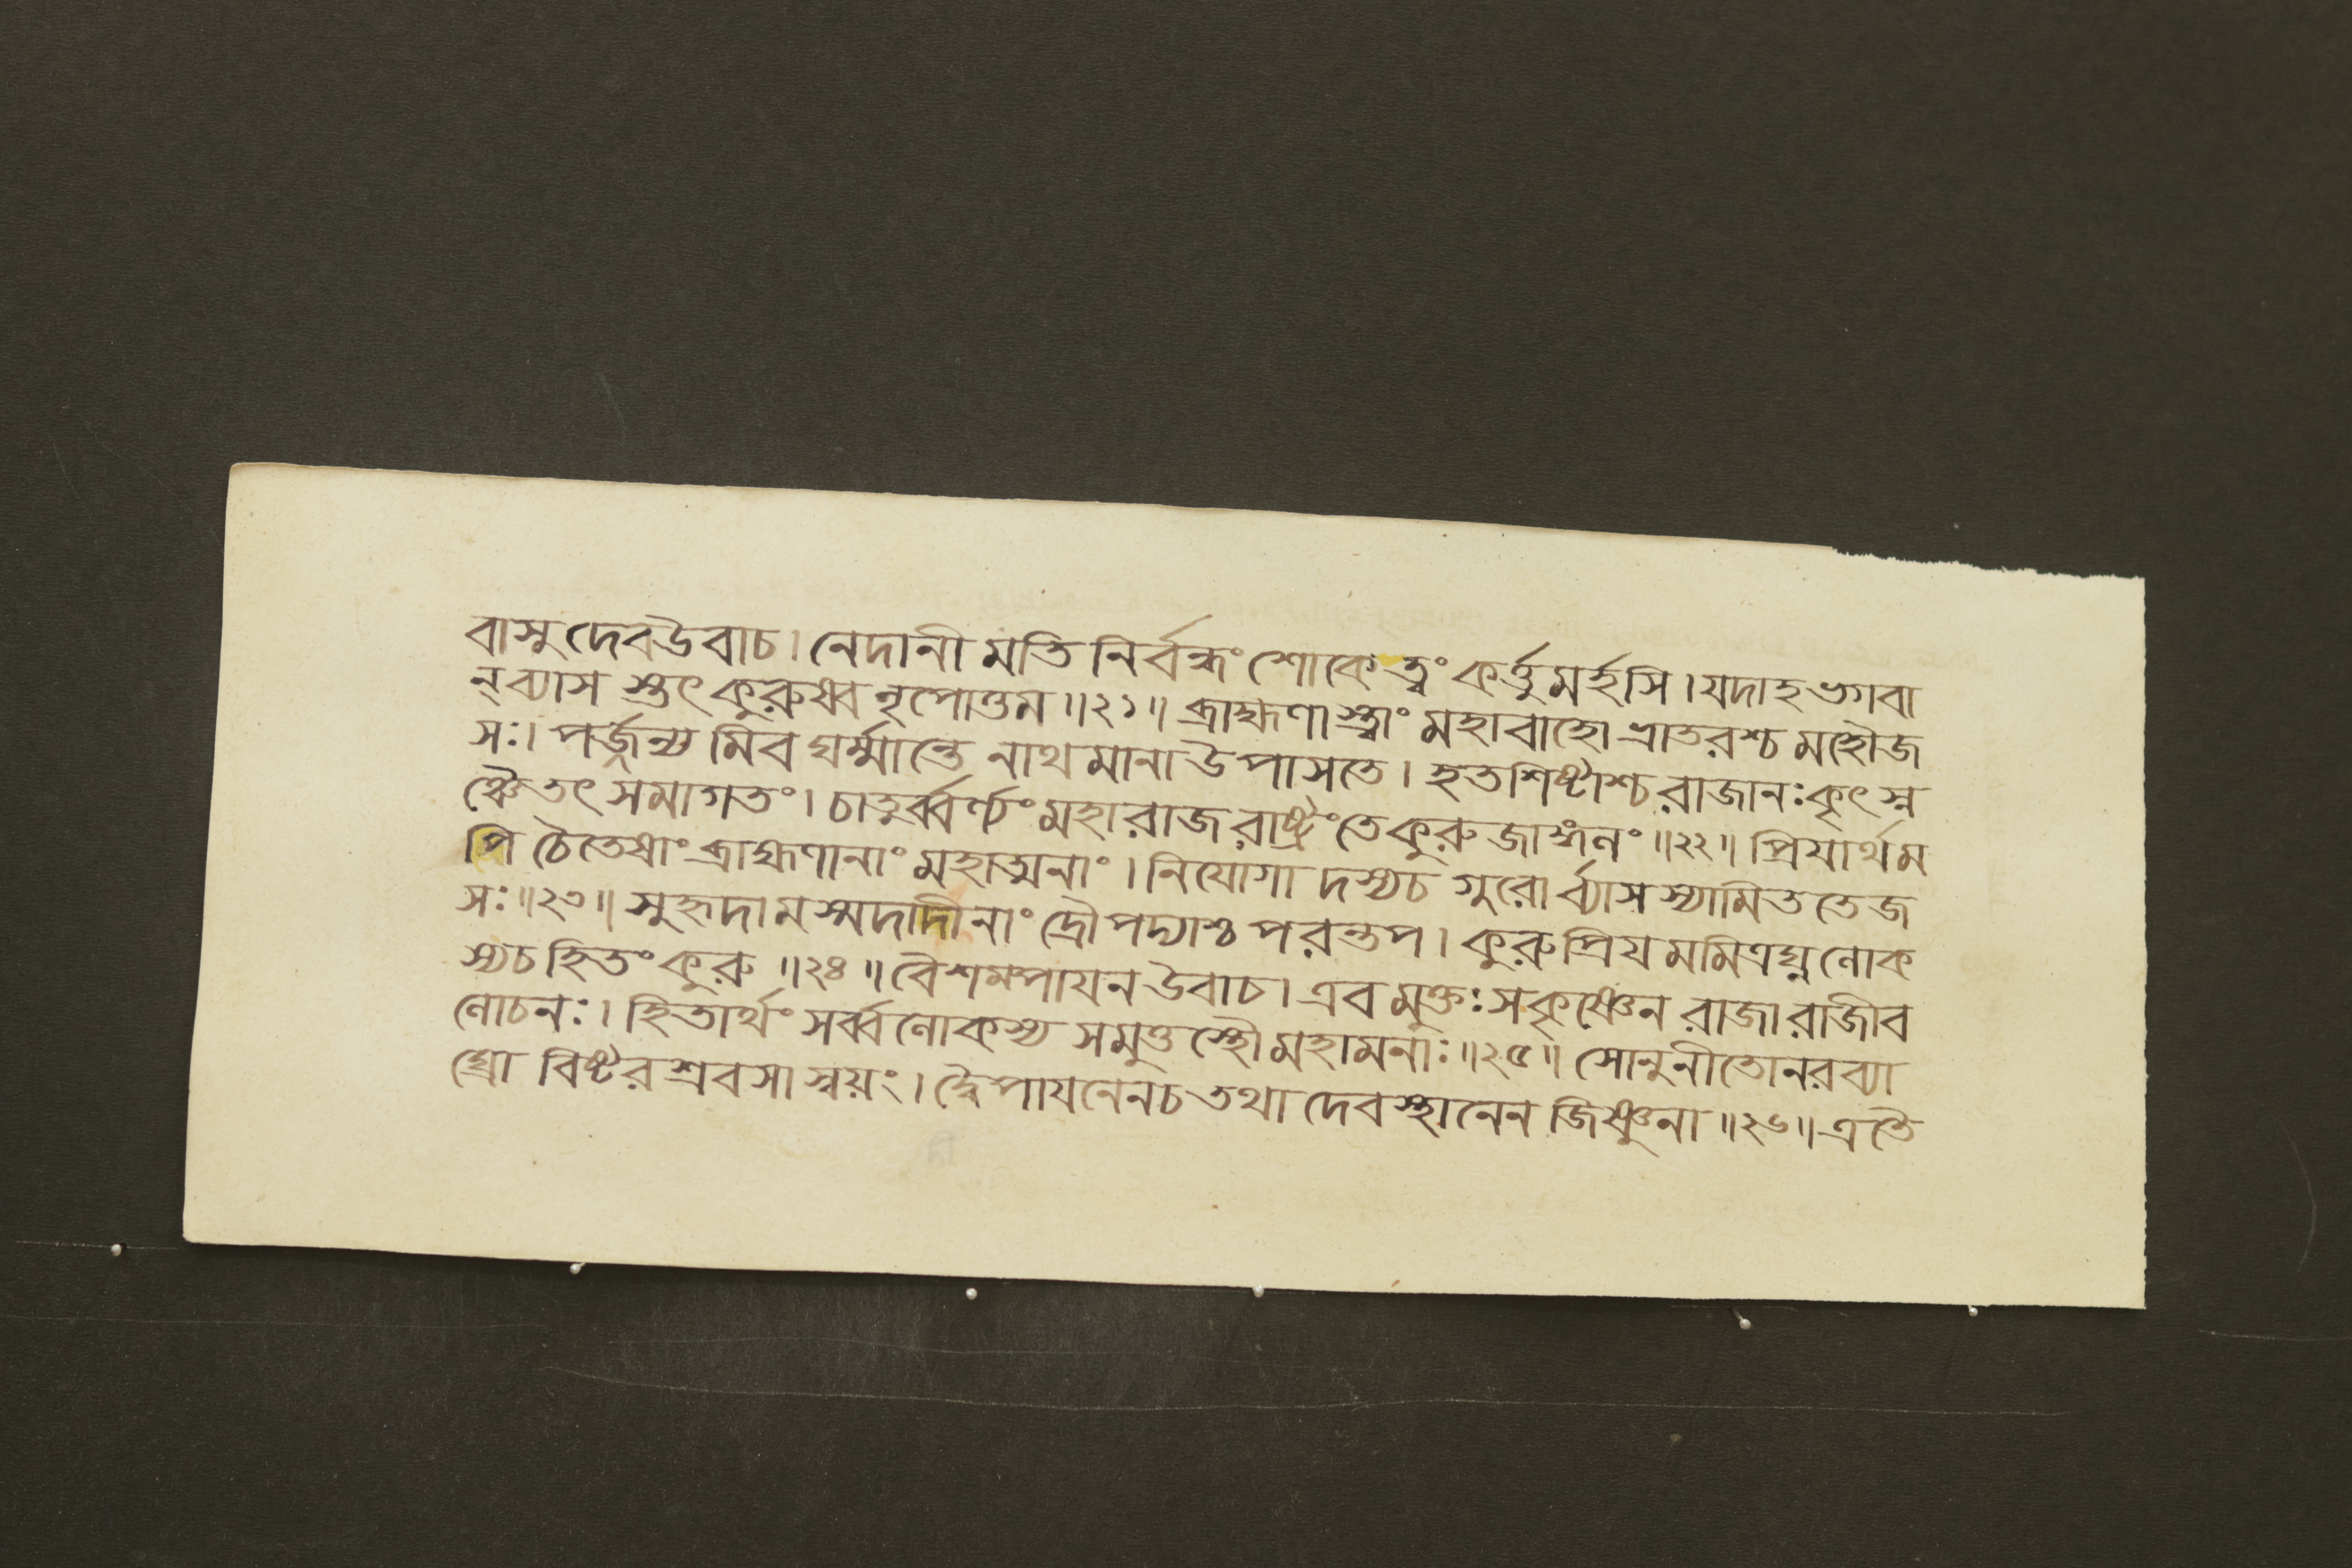 বাসুদেবউবাচ। নেদানীমতিনির্বন্ধং শোকেত্বং কর্ত্তুমর্হসি। যদাহ ভগবা
ন্ব্যাসস্তৎ কুরুষ্ব নৃপোত্তম॥২১॥ ব্রাহ্মণাস্ত্বাং মহাবাহো ভ্রাতরশ্চ মহৌজ
সঃ। পর্জ্জন্যমিব ঘর্ম্মান্তে নাথমানা উপাসতে। হতশিষ্টাশ্চ রাজানঃ কৃৎস্ন
ঞ্চৈতৎ সমাগতং। চাতুর্ব্বর্ণ্যং মহারাজ রাষ্ট্রং তে কুরুজাঙ্গলং॥২২॥ প্রিযার্থম
পি চৈতেষাং ব্রাহ্মণানাং মহাত্মনাং। নিযোগাদস্যচ গুরোর্ব্যাসস্যামিততেজ
সঃ॥২৩॥ সুহৃদামস্মদাদীনাং দ্রৌপদ্যাশ্চ পরন্তপ। কুরু প্রিযমমিত্রঘ্ন লোক
স্যচ হিতং কুরু॥২৪॥ বৈশম্পাযন উবাচ। এবমুক্তঃ সকৃষ্ণেন রাজা রাজীব
লোচনঃ। হিতার্থং সর্ব্বলোকস্য সমুত্তস্থৌ মহামনাঃ॥২৫॥ সোনুনীতো নরব্যা
ঘ্রো বিষ্টরশ্রবসা স্বয়ং। দ্বৈপাযনেনচ তথা দেবস্থানেন জিষ্ণুনা॥২৬॥ এতৈ